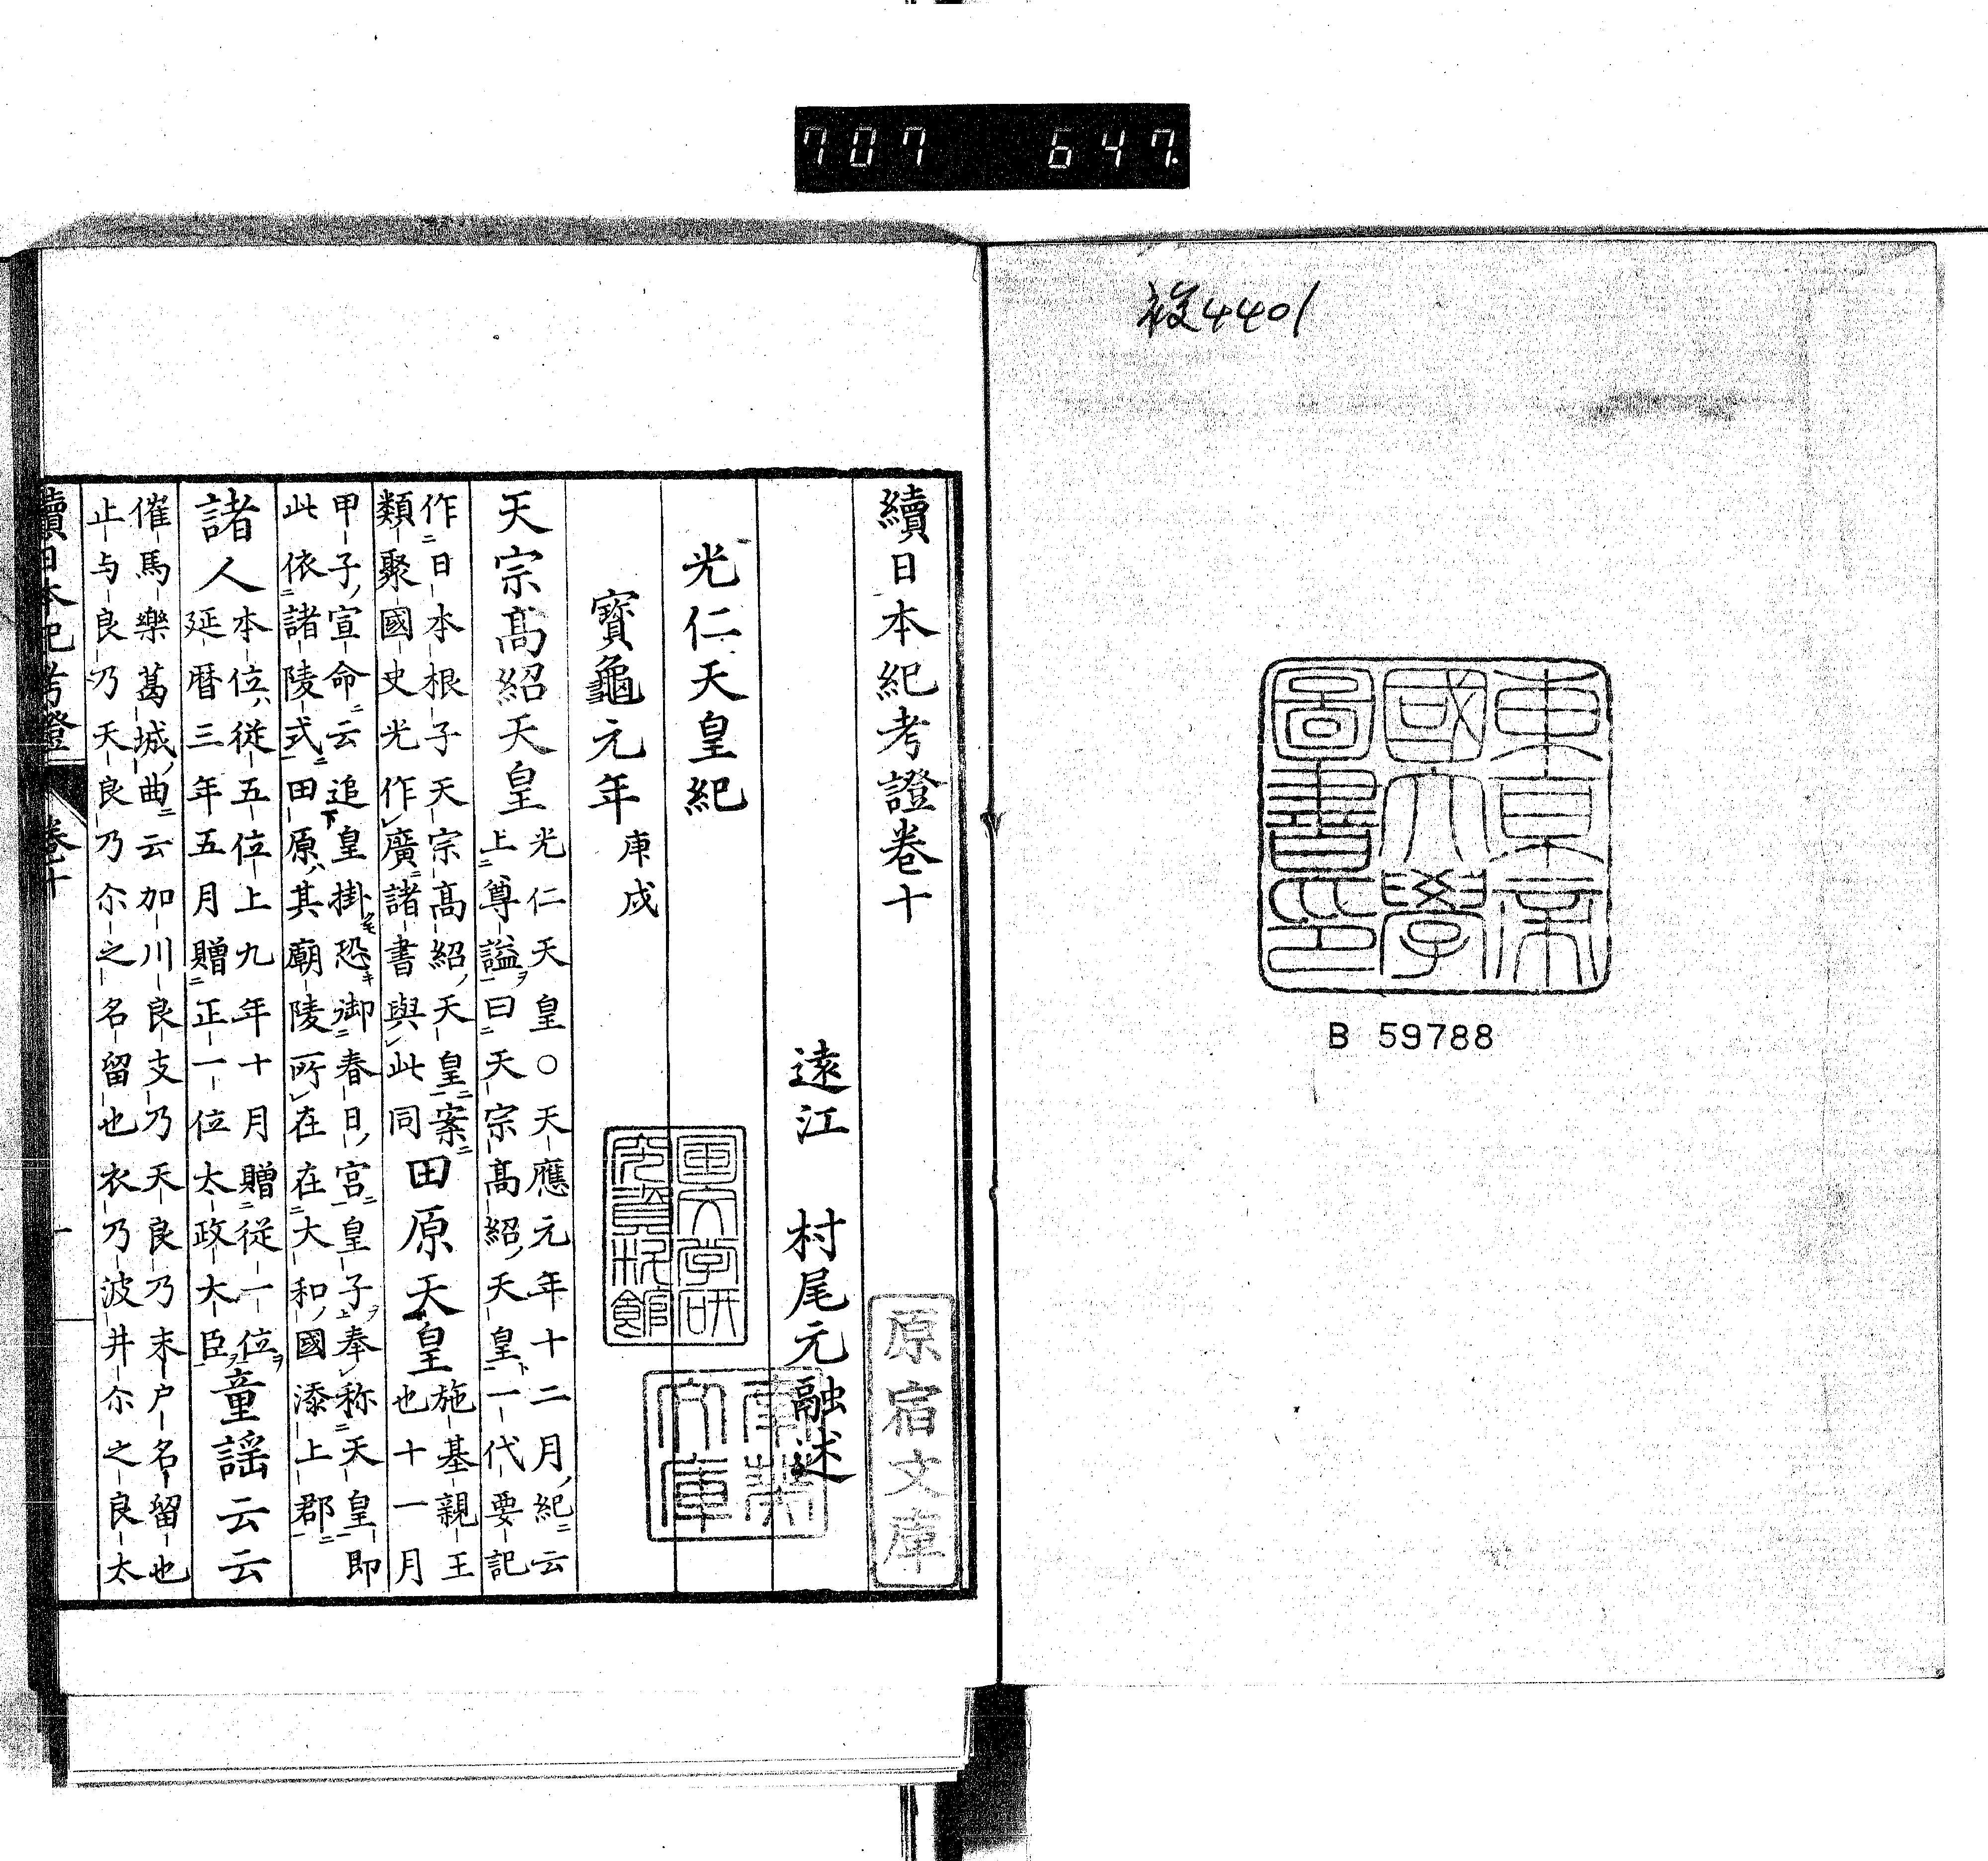 707 647.
複4401
東京帝
國大學
圖書印
B 59788
續日本紀考證卷十
遠江 村尾元融述
原宿文庫
光仁天皇紀
寶龜元年庚戌
天宗髙紹天皇光仁天皇○天應元年十二月紀云
上尊謚曰天宗髙紹天皇一代要記
作日本根子天宗髙紹天皇案
類聚國史光作廣諸書與此同田原天皇施基親王
也十一月
甲子宣命云追皇掛恐御春日宮皇子奉称天皇即
此依諸陵式田原其廟陵所在在大和國添上郡
諸人本位從五位上九年十月贈從一位
延暦三年五月贈正一位太政大臣童謡云云
催馬樂葛城曲云加川良支乃天良乃末户名留也
止与良乃天良乃尒之名留也衣乃波井尒之良太
續日本紀考證 卷十 一